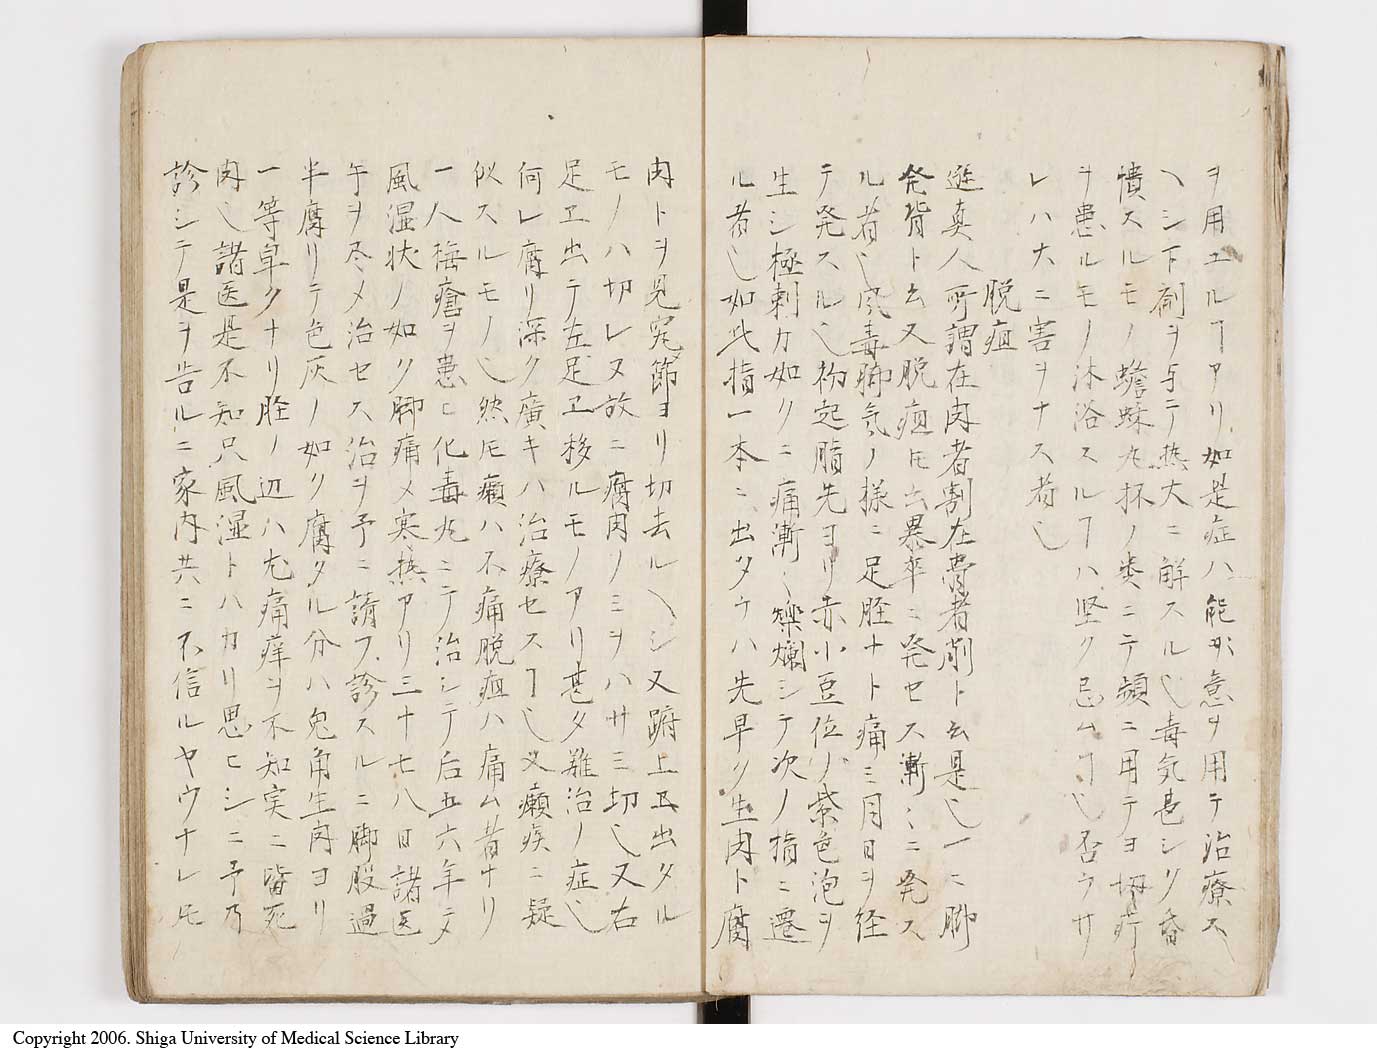 ヲ用ユルヿアリ如是症ハ能々意ヲ用テ治療ス
ヘシ下剤ヲ与テ热大ニ解スル也毒気甚シク昏
憒スルモノ蟾蛛丸杯ノ类ニテ頻ニ用テヨ
ヲ患ルモノ沐浴スルヿハ堅ク忌ムヿ也否ウサ
レハ大ニ害ヲナス者也
脱疽
遊真人所謂在肉者割在骨者削ト云是也一ニ脚
発背ト云又脱疽圧云暴卒ニ発セス漸々ニ発ス
ル者也風毒脚気ノ様ニ足胫ナト痛ミ月日ヲ経
テ発スル也初起脂先ヨリ赤小豆位ノ紫色泡ヲ
生シ極刺カ如クニ痛漸々爛シテ次ノ指ニ遷
ル者也如此指一本ニ出タラハ先早ク生肉ト腐
肉トヲ見究節ヨリ切去ルヘシ又跗上ヱ出タル
モノハ切レヌ故ニ腐肉ノミヲハサミ切也又右
足ヱ出テ左足ヱ移ルモノアリ甚タ難治ノ症也
何レ腐リ深ク廣キハ治療セスヿ也又癩疾ニ疑
似スルモノ也然圧癩ハ不痛脱疽ハ痛ム者ナリ
一人梅瘡ヲ患ヒ化毒丸ニテ治シテ后五六年メ
風湿状ノ如ク脚痛メ寒热アリ三十七八日諸医
午ヲ尽メ治セス治ヲ予ニ請フ診スルニ脚股過
半腐リテ色灰ノ如ク腐タル分ハ兔角生肉ヨリ
一等卑クナリ胫ノ辺ハ尤痛痒ヲ不知実ニ皆死
肉也諸医是不知只風湿トハカリ思ヒシニ予乃
診シテ是ヲ告ルニ家内共ニ不信ルヤウナレ圧
Copyright 2006. Shiga University of Medical Science Library